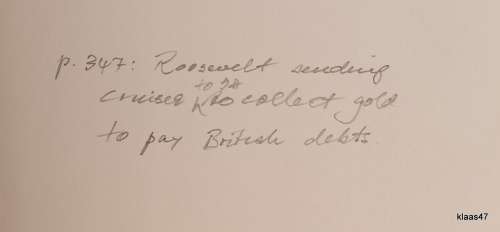 p. 347: Roosevelt sending
cruiser to collect gold
to pay British debts.
klaas47